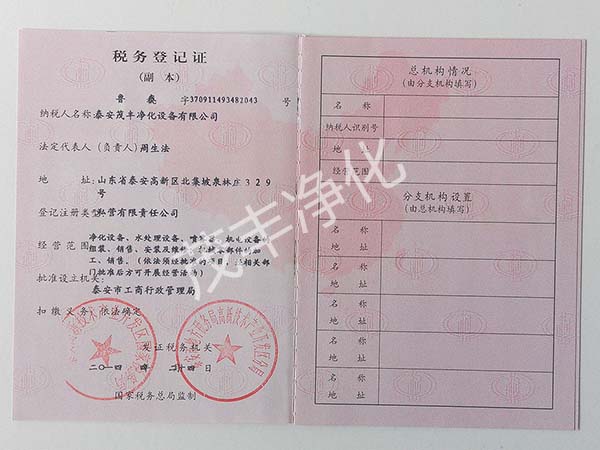 税务登记证
(副 本)
鲁 泰 字370911493482043 号
纳税人名称:泰安茂丰净化设备有限公司
法定代表人(负责人)周生法
地 址:山东省泰安高新区北集坡泉林庄329
号
登记注册类型:私营有限责任公司
经营范围:净化设备、水处理设备、 机电设备
组装、销售、安装及维 加
工、销售。(依法须经批准的项目, 相关部
门批准后方可开展经营活动)
批准设立机关:
泰安市工商行政管理局
扣缴义务:依法确定
发证税务机关
二〇一四 年 月 十四 日
国家税务总局监制
茂丰净化
总机构情况
(由分支机构填写)
名 称
纳税人识别号
地 址
经营范围
分支机构设置
(由总机构填写)
名 称
地 址
名 称
地 址
名 称
地 址
名 称
地 址
名 称
地 址